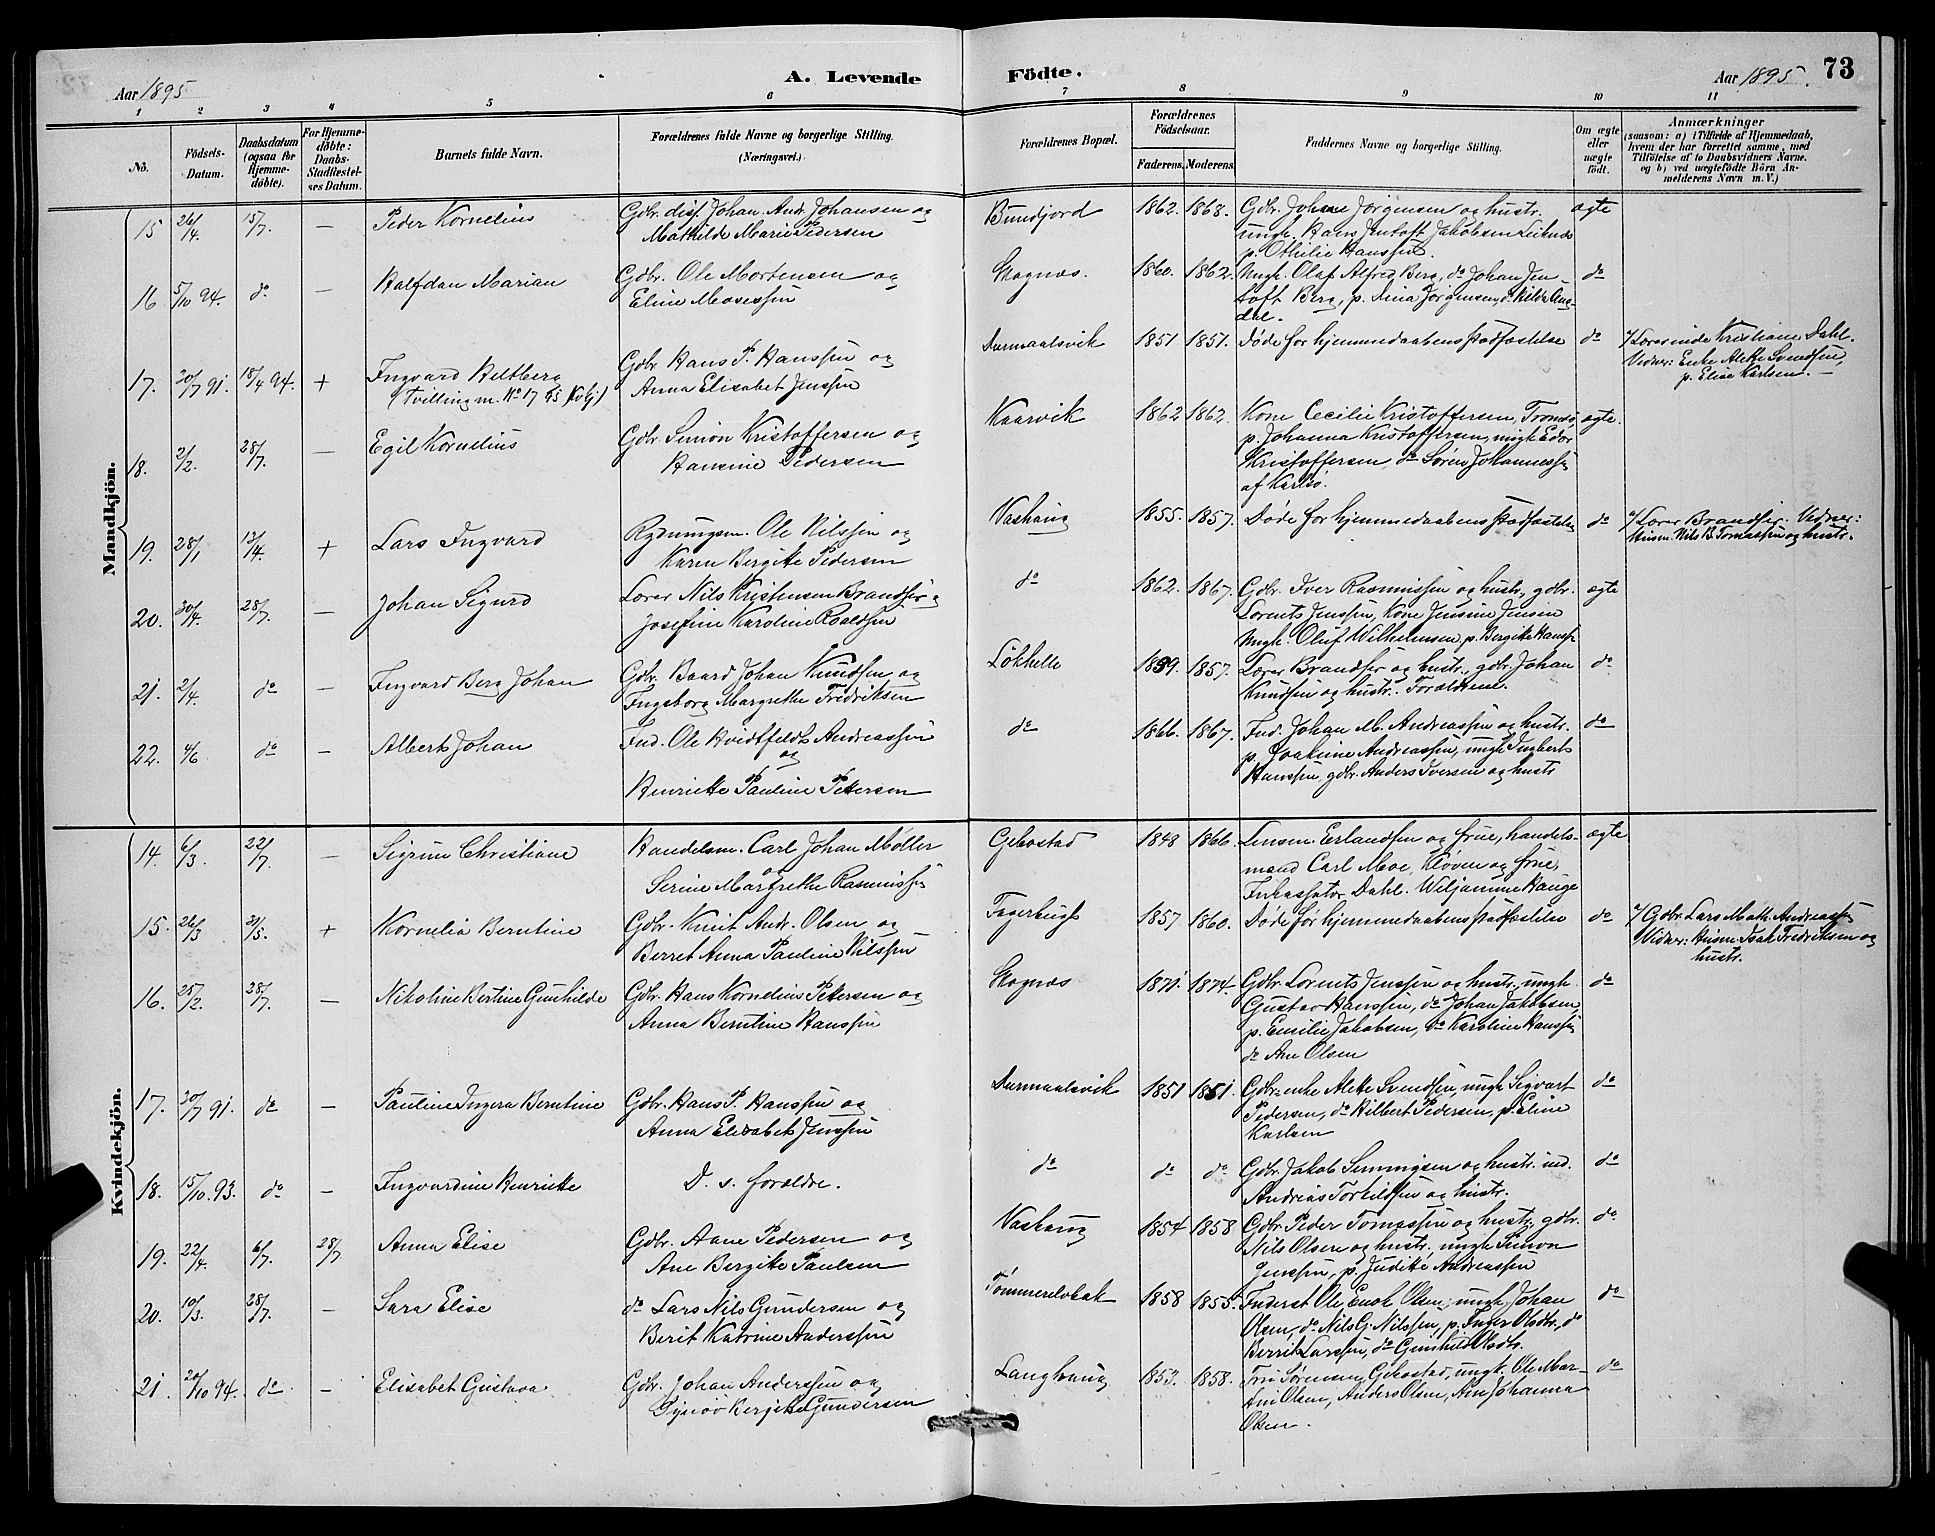 Aar 1895
A. Levende
Födte.
Aar 1895.
73
1 2 3 4 5 6 7 8 9 10 11
No.
Födsels-Datum.
Daabsdatum (ogsaa for Hjemme-döbte).
For Hjemme-döbte: Daabs-Stadfæstel-ses Datum.
Barnets fulde Navn.
Forældrenes fulde Navne og borgerlige Stilling. (Næringsvei.)
Forældrenes Bopæl.
Forældrenes Födselsaar.
Faderens. Moderens.
Faddernes Navne og borgerlige Stilling.
Om ægte eller uægte födt.
Anmærkninger (saasom: a) i Tilfælde af Hjemmedaab, hvem der har forrettet samme, med Tilföielse af to Daabsvidners Navne, og b) ved uægtefödte Börn An-melderens Navn m. V.)
Mandkjön.
15 26/4. 15/7. — Peder Kornelius
Gdbr. diss. Johan Andr. Johansen og
Mathilde Marie Pedersen
Bundjord 1862. 1868.
Gdbr. Johan Jørgensen og hustr.
ungk. Hans Jentoft Jakobsen Leiknes
p. Othilie Hanssen.
ægte
16. 5/10 94. do — Halfdan Marian
Gdbr. Ole Mortensen og
Eline Mosessen
Skognæs. 1860. 1862.
Ungk. Olaf Alfred Berg, do Johan Jen-
toft Berg, p. Dina Jørgensen, do Hilda Aag-
dal.
do
17. 30/7 91. 15/4 94. + Ingvard Hiltberg
(Tvilling m. No 17 95 Kvkj)
Gdbr Hans P. Hanssen og
Anna Elisabet Jenssen
Durmaalsvik 1851 1851.
Døde før hjemmedaabens stadfæstelse
do
a/ Lærerinde Kristiane Dahl.
Vidner: Enke Alette Svendsen,
p. Elise Karlsen. —
18. 2/2. 28/7. — Egil Kornelius
Gdbr. Simon Kristoffersen og
Hansine Pedersen
Kaarvik 1862 1862.
Kone Cecilie Kristoffersen, Tromsø,
p. Johanna Kristoffersen, ungk Edor
Kristoffersen, do Søren Johannessen
af Karlsø.
ægte.
19. 28/1 13/4. + Lars Ingvard
Rydningsm. Ole Nilssen og
Karen Bergitte Pedersen
Vashaug 1855. 1857.
Døde før hjemmedaabens stadfæstelse
do
a/ Lærer Brandser. Vidner:
Husm. Nils B. Tomassen og hustr.
20. 30/4. 28/7. — Johan Sigurd
Lærer Nils Kristensen Brandser og
Josefine Karoline Roaldsen
do 1862. 1867.
Gdbr. Iver Rasmussen og hustr., gdbr.
Lorents Jenssen, Kone Jensine Jensen
Ungk. Oluf Wilhelmsen, p. Bergitte Hanss.
ægte
21. 2/4. do — Ingvard Berg Johan
Gdbr. Baard Johan Knudsen og
Ingeborg Margrethe Fredriksen
Løkhelle 1859. 1857.
Lærer Brandser og hustr., gdbr. Johan
Knudsen og hustr. Forældrene.
do
22. 4/6. do — Albert Johan
Ind. Ole Hvidtfeldt Andreassen
og
Henriette Pauline Pettersen
do 1866. 1867.
Ind. Johan M. Andreassen og hustr.
p. Joakime Andreassen, ungk Ingbert
Hanssen, gdbr. Anders Iversen og hustr
do
Kvindekjön.
14. 6/3. 22/7. — Sigrun Christiane
Handelsm. Carl Johan Møller
og
Serine Margrethe Rasmussen
Gibostad 1848 1866.
Lensm. Erlandsen og frue, handels-
mand Carl Moe, Kløven og frue,
Inkassator Dahl. Wiljamine Hauge
ægte
15. 26/3 31/5. + Kornelia Berntine
Gdbr. Knut Andr. Olsen og
Berret Anna Pauline Nilssen
Fagerhaugh 1857 1860.
Døde før hjemmedaabens stadfæstelse
do
a/ Gdbr. Lars Math. Andreassen
Vidner: Husm. Isak Fredriksen og
hustr.
16. 25/2. 28/7. — Nikoline Bertine Gunhilde
Gdbr. Hans Kornelius Petersen og
Anna Berntine Hanssen
Skognæs 1871. 1874.
Gdbr. Lorents Jenssen og hustr., ungk.
Gustav Hanssen, do Johan Jakobsen,
p. Emilie Jakobsen, do Karoline Hanssen
do Ane Olsen
do
17. 30/7 91. do — Pauline Ingera Berntine
Gdbr. Hans P. Hanssen og
Anna Elisabet Jenssen
Durmaalsvik 1851 1851.
Gdbr. enke Alette Svendsen, ungk Sigvart
Pedersen, do Hilbert Pedersen, p. Eline
Karlsen
do
18. 15/10. 93. do — Ingvardine Henriette
D. s. forældre.
do do do
Gdbr. Jakob Simmigsen og hustr. ind.
Andreas Torkildsen og hustr.
do
19. 22/4. 6/7. 28/7 Anna Elise
Gdbr. Aane Pedersen og
Ane Bergitte Paulsen
Vashaug 1854 1858
Gdbr. Peder Tomassen og hustr., gdbr.
Nils Olsen og hustr. ungk Simon
Jenssen, p. Judite Andreassen
do.
20. 10/3. 28/7. — Sara Elise
do Lars Nils Gundersen og
Berit Katrine Anderssen
Tømmerelvbak 1858 1855.
Inderst Ole Enok Olsen, ungk Johan
Olsen, do Nils G. Nilssen, p. Inger Olsdtr., do
Berrit Larssen, do Gunhild Olsdtr.
do
21. 20/10 94. do — Elisabet Gustava
Gdbr. Johan Anderssen og
Synøv Bergitte Gundersen
Langhaug 1853. 1858.
Fru Sørensen, Gibostad, ungk. Ole Mar-
tin Olsen, Anders Olsen, Ane Johanna
Olsen.
do